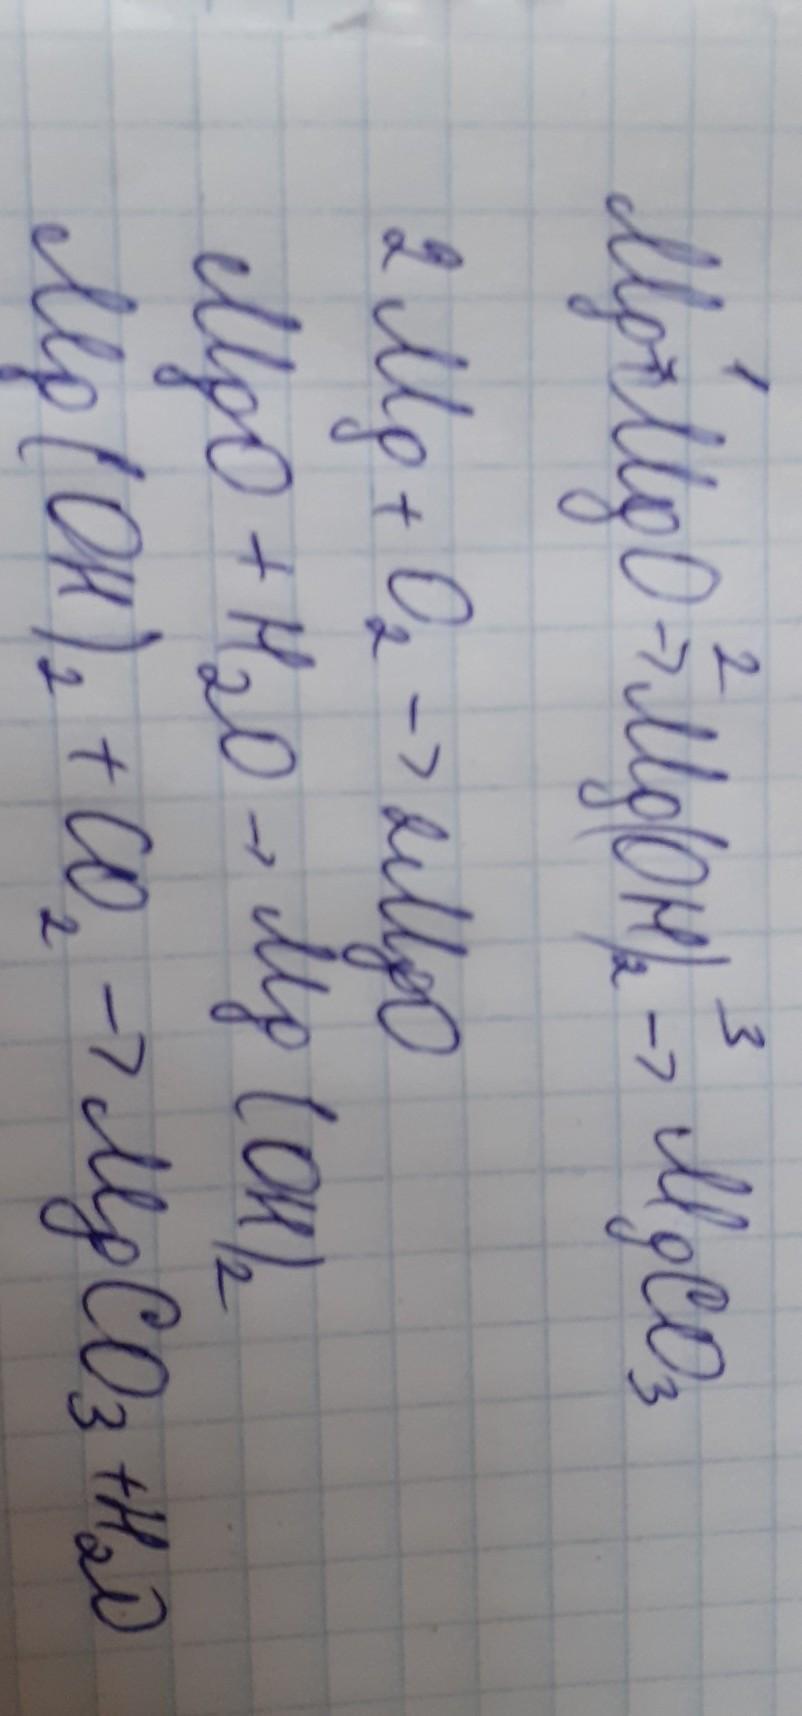 1 2 3
Mg → MgO → Mg(OH)₂ → MgCO₃
2 Mg + O₂ → 2MgO
MgO + H₂O → Mg (OH)₂
Mg (OH)₂ + CO₂ → MgCO₃ + H₂O